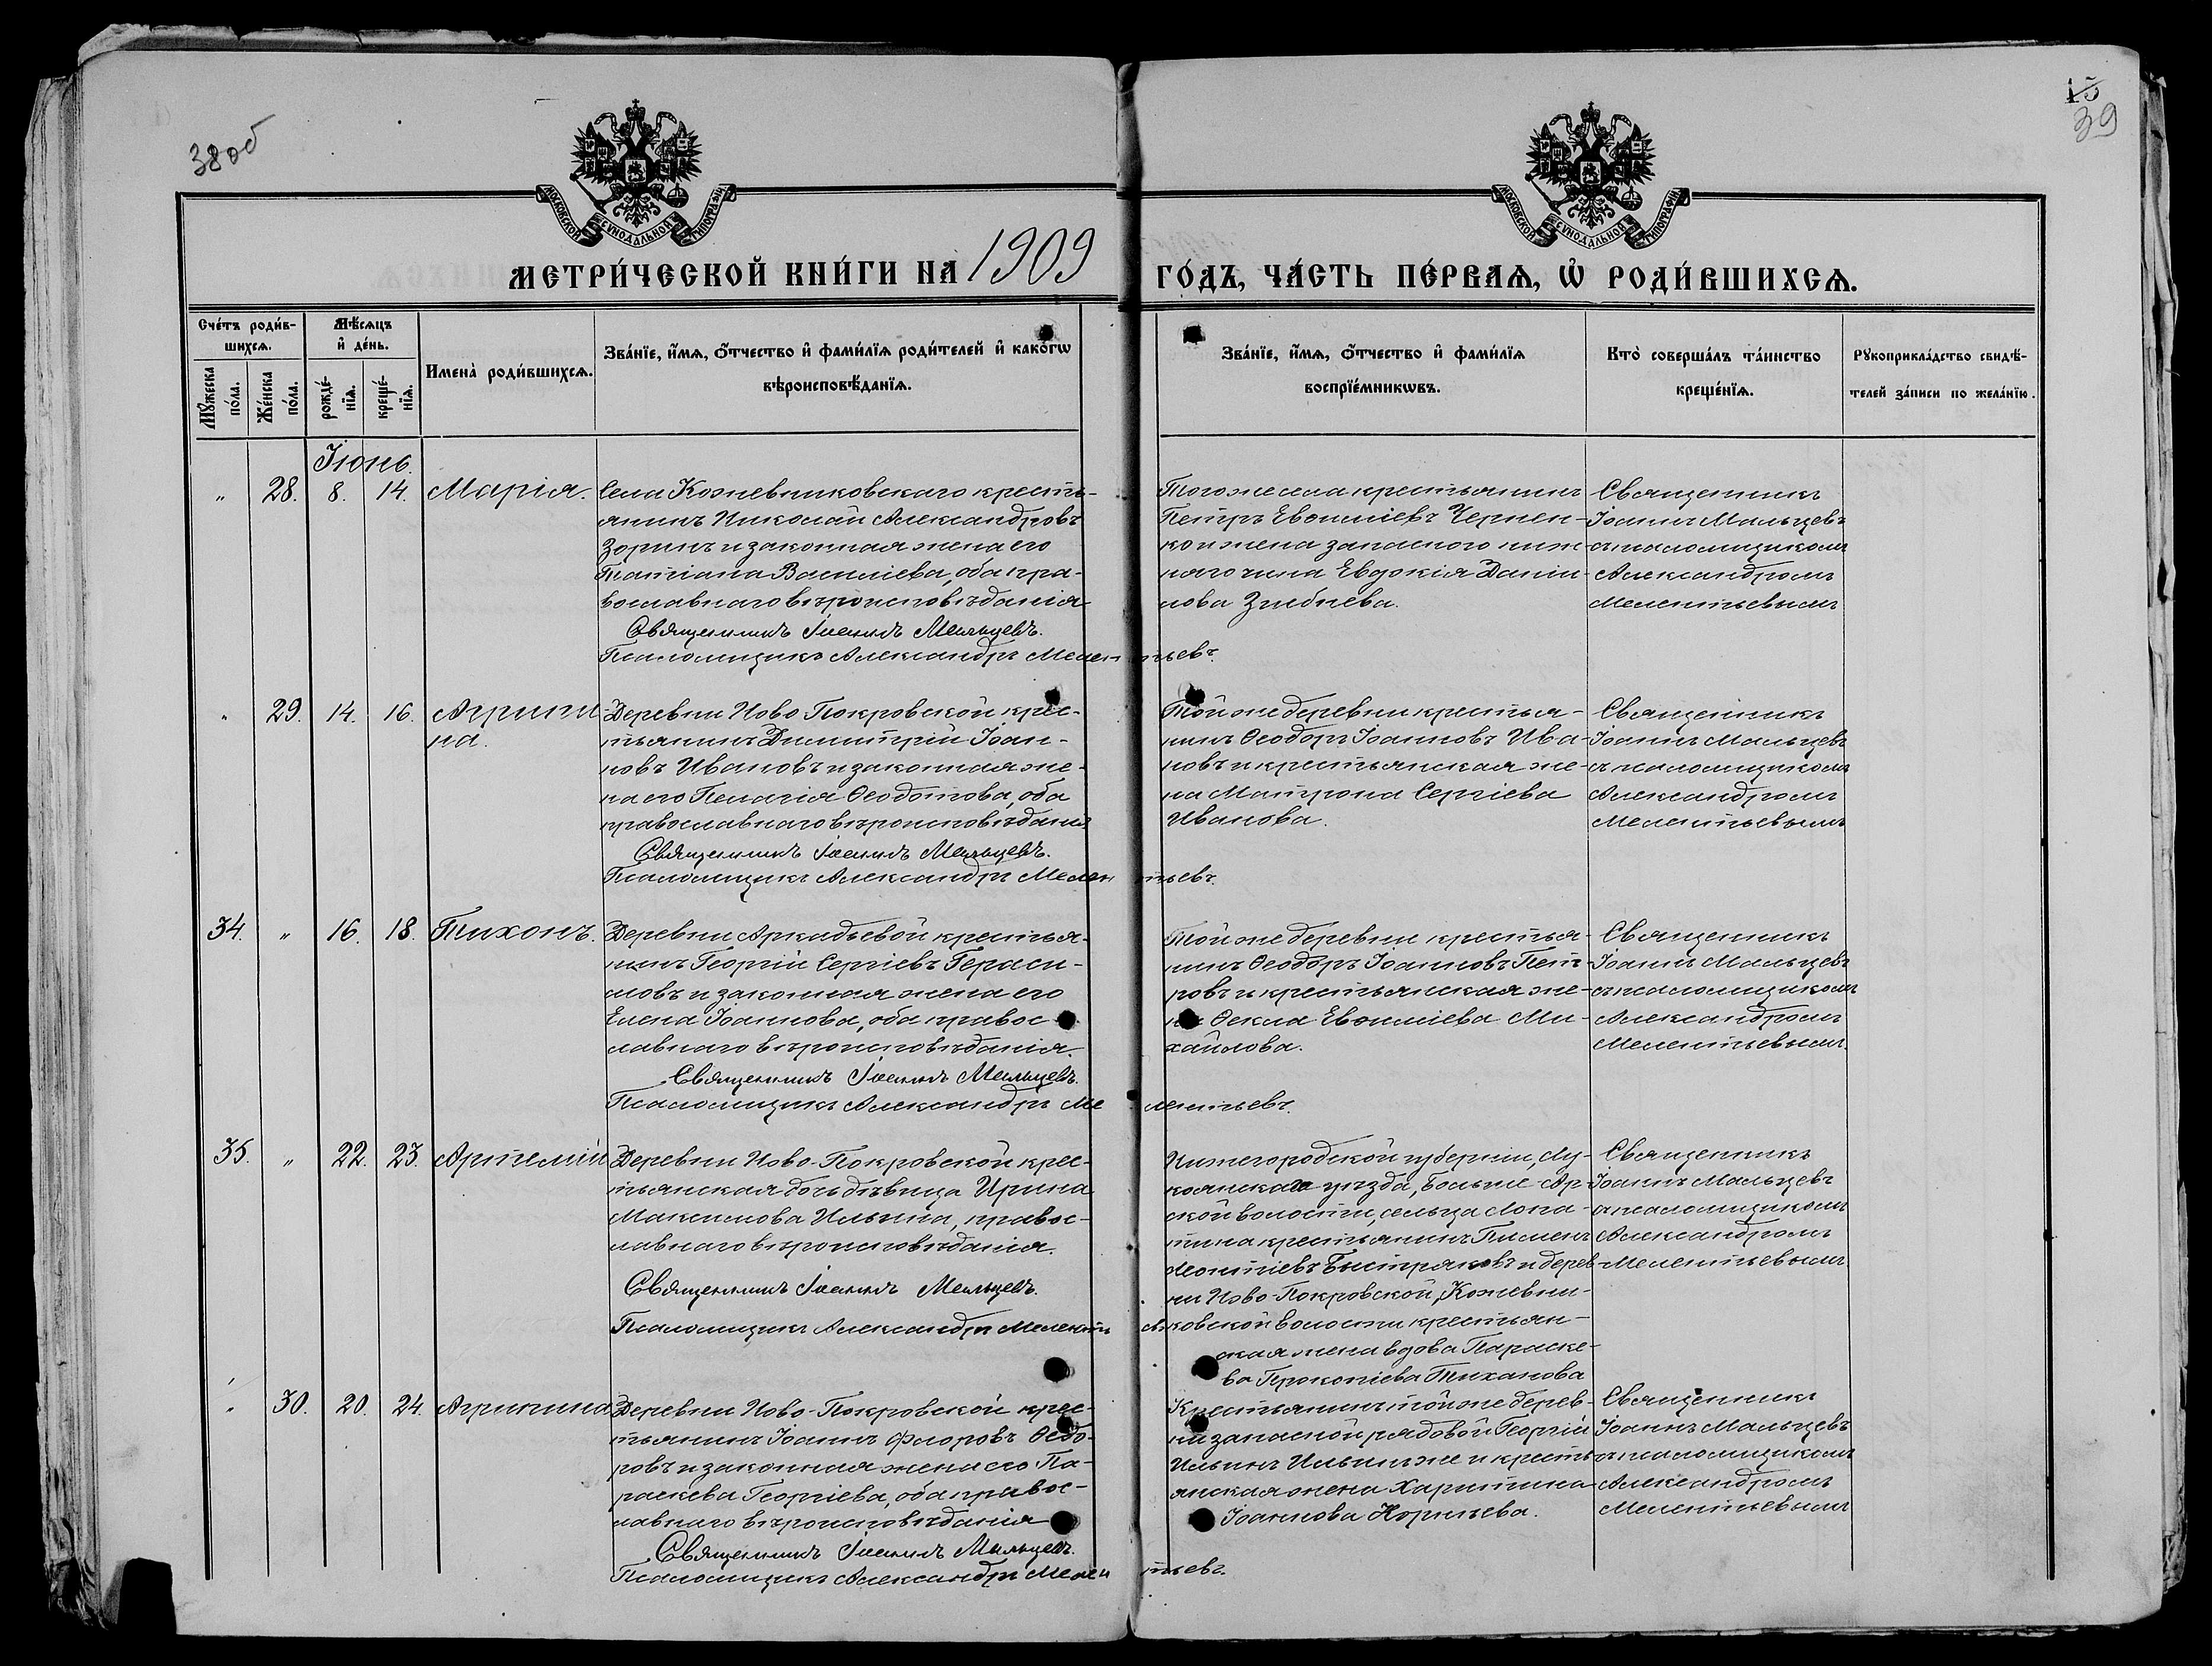 38 об
15
39
МОСКОВСКОЙ СѴНОДАЛЬНОЙ ТИПОГРАФИИ
МОСКОВСКОЙ СѴНОДАЛЬНОЙ ТИПОГРАФИИ
МЕТРИ́ЧЕСКОЙ КНИ́ГИ НА 1909 ГО́ДЪ, ЧА́СТЬ ПЕ́РВАѦ, Ѡ҆ РОДИ́ВШИХСѦ.
Сче́тъ роди́в-
шихсѧ.
Мѣ́сѧцъ
и҆ де́нь.
Мꙋ́жеска
по́ла.
Же́нска
по́ла.
рожде́-
нїѧ.
креще́-
нїѧ.
Имена̀ роди́вшихсѧ.
Зва́нїе, и҆́мѧ, ѻ҆́тчество и҆ фами́лїѧ роди́телей и҆ како́гѡ
вѣроисповѣ́данїѧ.
Зва́нїе, и҆́мѧ, ѻ҆́тчество и҆ фами́лїѧ
воспрїе́мникѡвъ.
Кто̀ соверша́лъ та́инство
креще́нїѧ.
Рꙋкоприкла́дство свидѣ́-
телей за́писи по жела́нїю.
Іюнь.
" 28. 8. 14. Марія.
Села Кожевниковскаго кресть-
янинъ Николай Александровъ
Зоринъ и законная жена его
Татіана Василіева, оба пра-
вославнаго вѣроисповѣданія
Священникъ Іоаннъ Мальцевъ.
Псаломщикъ Александръ Мелентьевъ.
Тогоже села крестьянинъ
Петръ Евѳиміевъ Чернен-
ко и жена запасного ниж-
няго чина Евдокія Даніи-
лова
Священникъ
Іоаннъ Мальцевъ
съ псаломщикомъ
Александромъ
Мелентьевымъ
" 29. 14. 16. Агриппи-
на.
Деревни Ново Покровской крес-
тьянинъ Димитрій Іоан-
новъ Ивановъ и законная же-
на его Пелагія Ѳеодотова, оба
православнаго вѣроисповѣданія
Священникъ Іоаннъ Мальцевъ.
Псаломщикъ Александръ Мелентьевъ.
Тойже деревни крестья-
нинъ Ѳеодоръ Іоанновъ Ива-
новъ и крестьянская же-
на Матрона Сергіева
Иванова.
Священникъ
Іоаннъ Мальцевъ
съ псаломщикомъ
Александромъ
Мелентьевымъ
34. " 16. 18. Тихонъ.
Деревни Аркадьевой крестья-
нинъ Георгій Сергіевъ Гераси-
мовъ и законная жена его
Елена Іоаннова, оба правос-
лавнаго вѣроисповѣданія.
Священникъ Іоаннъ Мальцевъ.
Псаломщикъ Александръ Мелентьевъ.
Тойже деревни крестья-
нинъ Ѳеодоръ Іоанновъ Пет-
ровъ и крестьянская же-
на Ѳекла Евѳиміева Ми-
хайлова.
Священникъ
Іоаннъ Мальцевъ
съ псаломщикомъ
Александромъ
Мелентьевымъ.
35. " 22. 23. Артемій
Деревни Ново-Покровской крес-
тьянская дочь дѣвица Ирина
Максимова Ильина, правос-
лавнаго вѣроисповѣданія.
Священникъ Іоаннъ Мальцевъ.
Псаломщикъ Александръ Мелентьевъ
Нижегородской губерніи, Лу-
коянскаго уѣзда, Больше-Ар-
ской волости, сельца Лопа-
тина крестьянинъ Пименъ
Леонтіевъ Быстряковъ и дерев-
ни Ново-Покровской, Кожевни-
ковской волости крестьян-
ская жена вдова Параске-
ва Прокопіева Тиханова
Священникъ
Іоаннъ Мальцевъ
съ псаломщикомъ
Александромъ
Мелентьевымъ.
" 30. 20. 24. Агрипина
Деревни Ново-Покровской крес-
тьянинъ Іоаннъ Флоровъ Ѳедо-
ровъ и законная жена его Па-
раскева Георгіева, оба правос-
лавнаго вѣроисповѣданія
Священникъ Іоаннъ Мальцевъ.
Псаломщикъ Александръ Мелентьевъ.
Крестьянинъ тойже дерев-
ни запасной рядовой Георгій
Ильинъ Ильинъ же и кресть-
янская жена Харитина
Іоаннова Корнѣева.
Священникъ
Іоаннъ Мальцевъ
съ псаломщикомъ
Александромъ
Мелентьевымъ